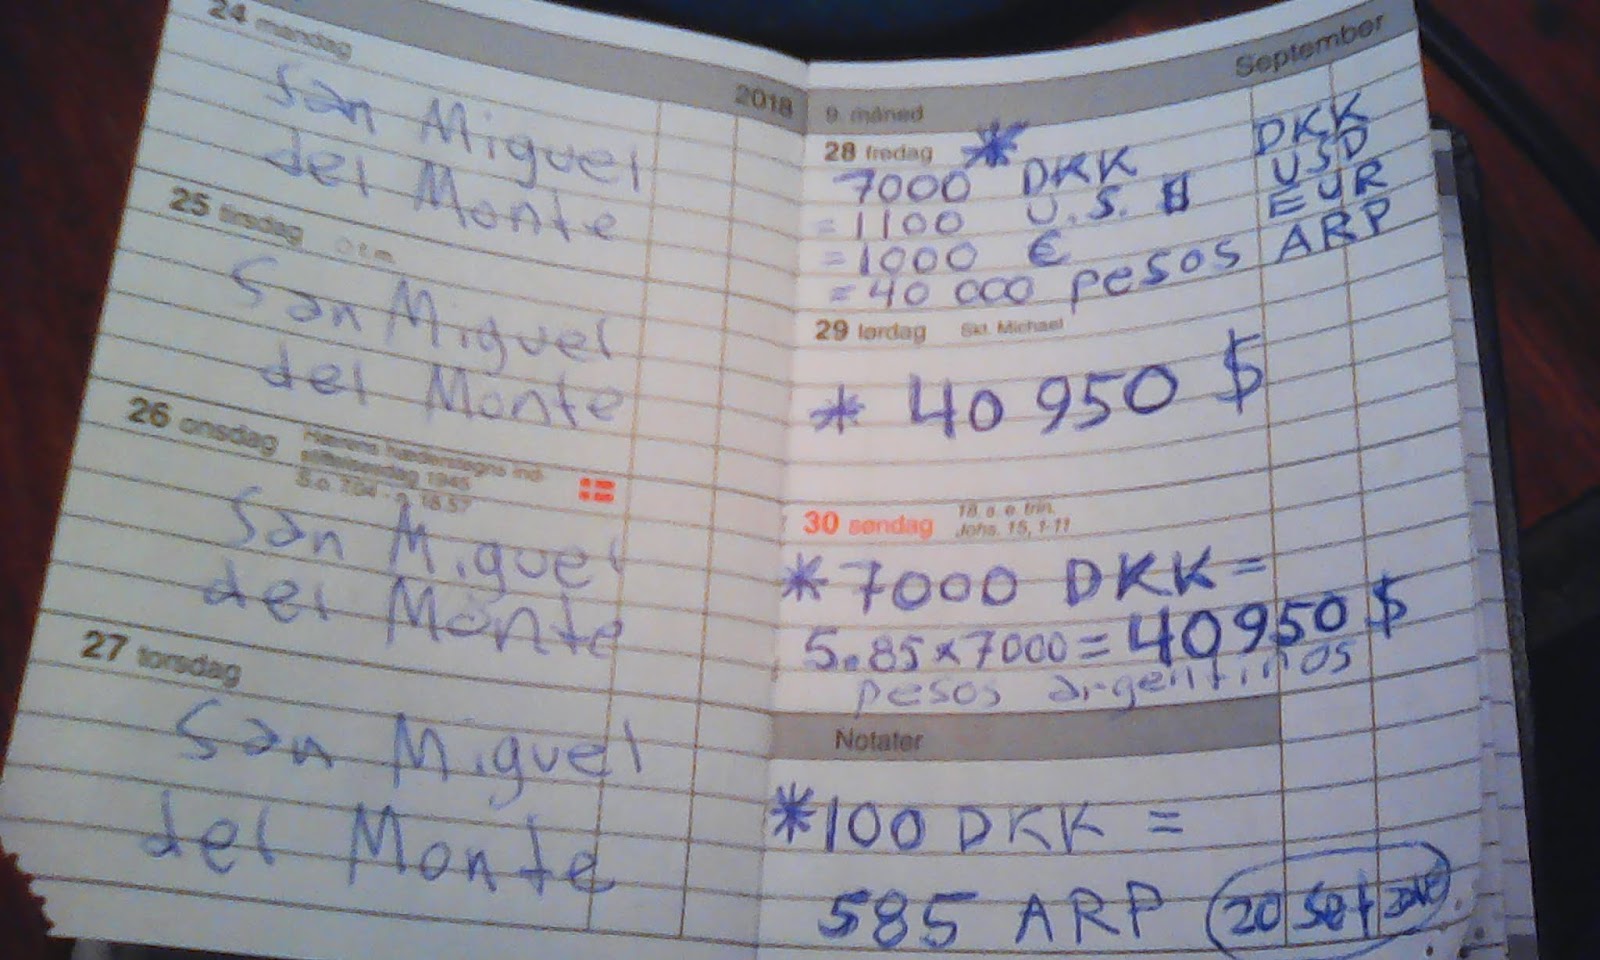 24 mandag
2018
San Miguel
del Monte
25 tirsdag
San Miguel
del Monte
26 onsdag
S.o. 7.04 - n. 18.57
San Miguel
del Monte
27 torsdag
San Miguel
del Monte
9. måned September
28 fredag *
7000 DKK DKK
=1100 U.S. $ USD
=1000 € EUR
=40 000 pesos ARP
29 lørdag Skt. Michael
* 40 950 $
30 søndag 18. s. e. trin.
Johs. 15, 1-11
*7000 DKK =
5.85 x 7000 = 40950 $
pesos argentinos
Notater
*100 DKK =
585 ARP 20 Set